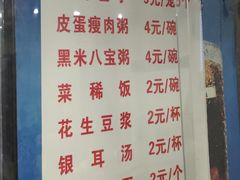 皮蛋瘦肉粥 4元/碗
黑米八宝粥 4元/碗
菜稀饭 2元/碗
花生豆浆 2元/杯
银耳汤 2元/杯
2元/个